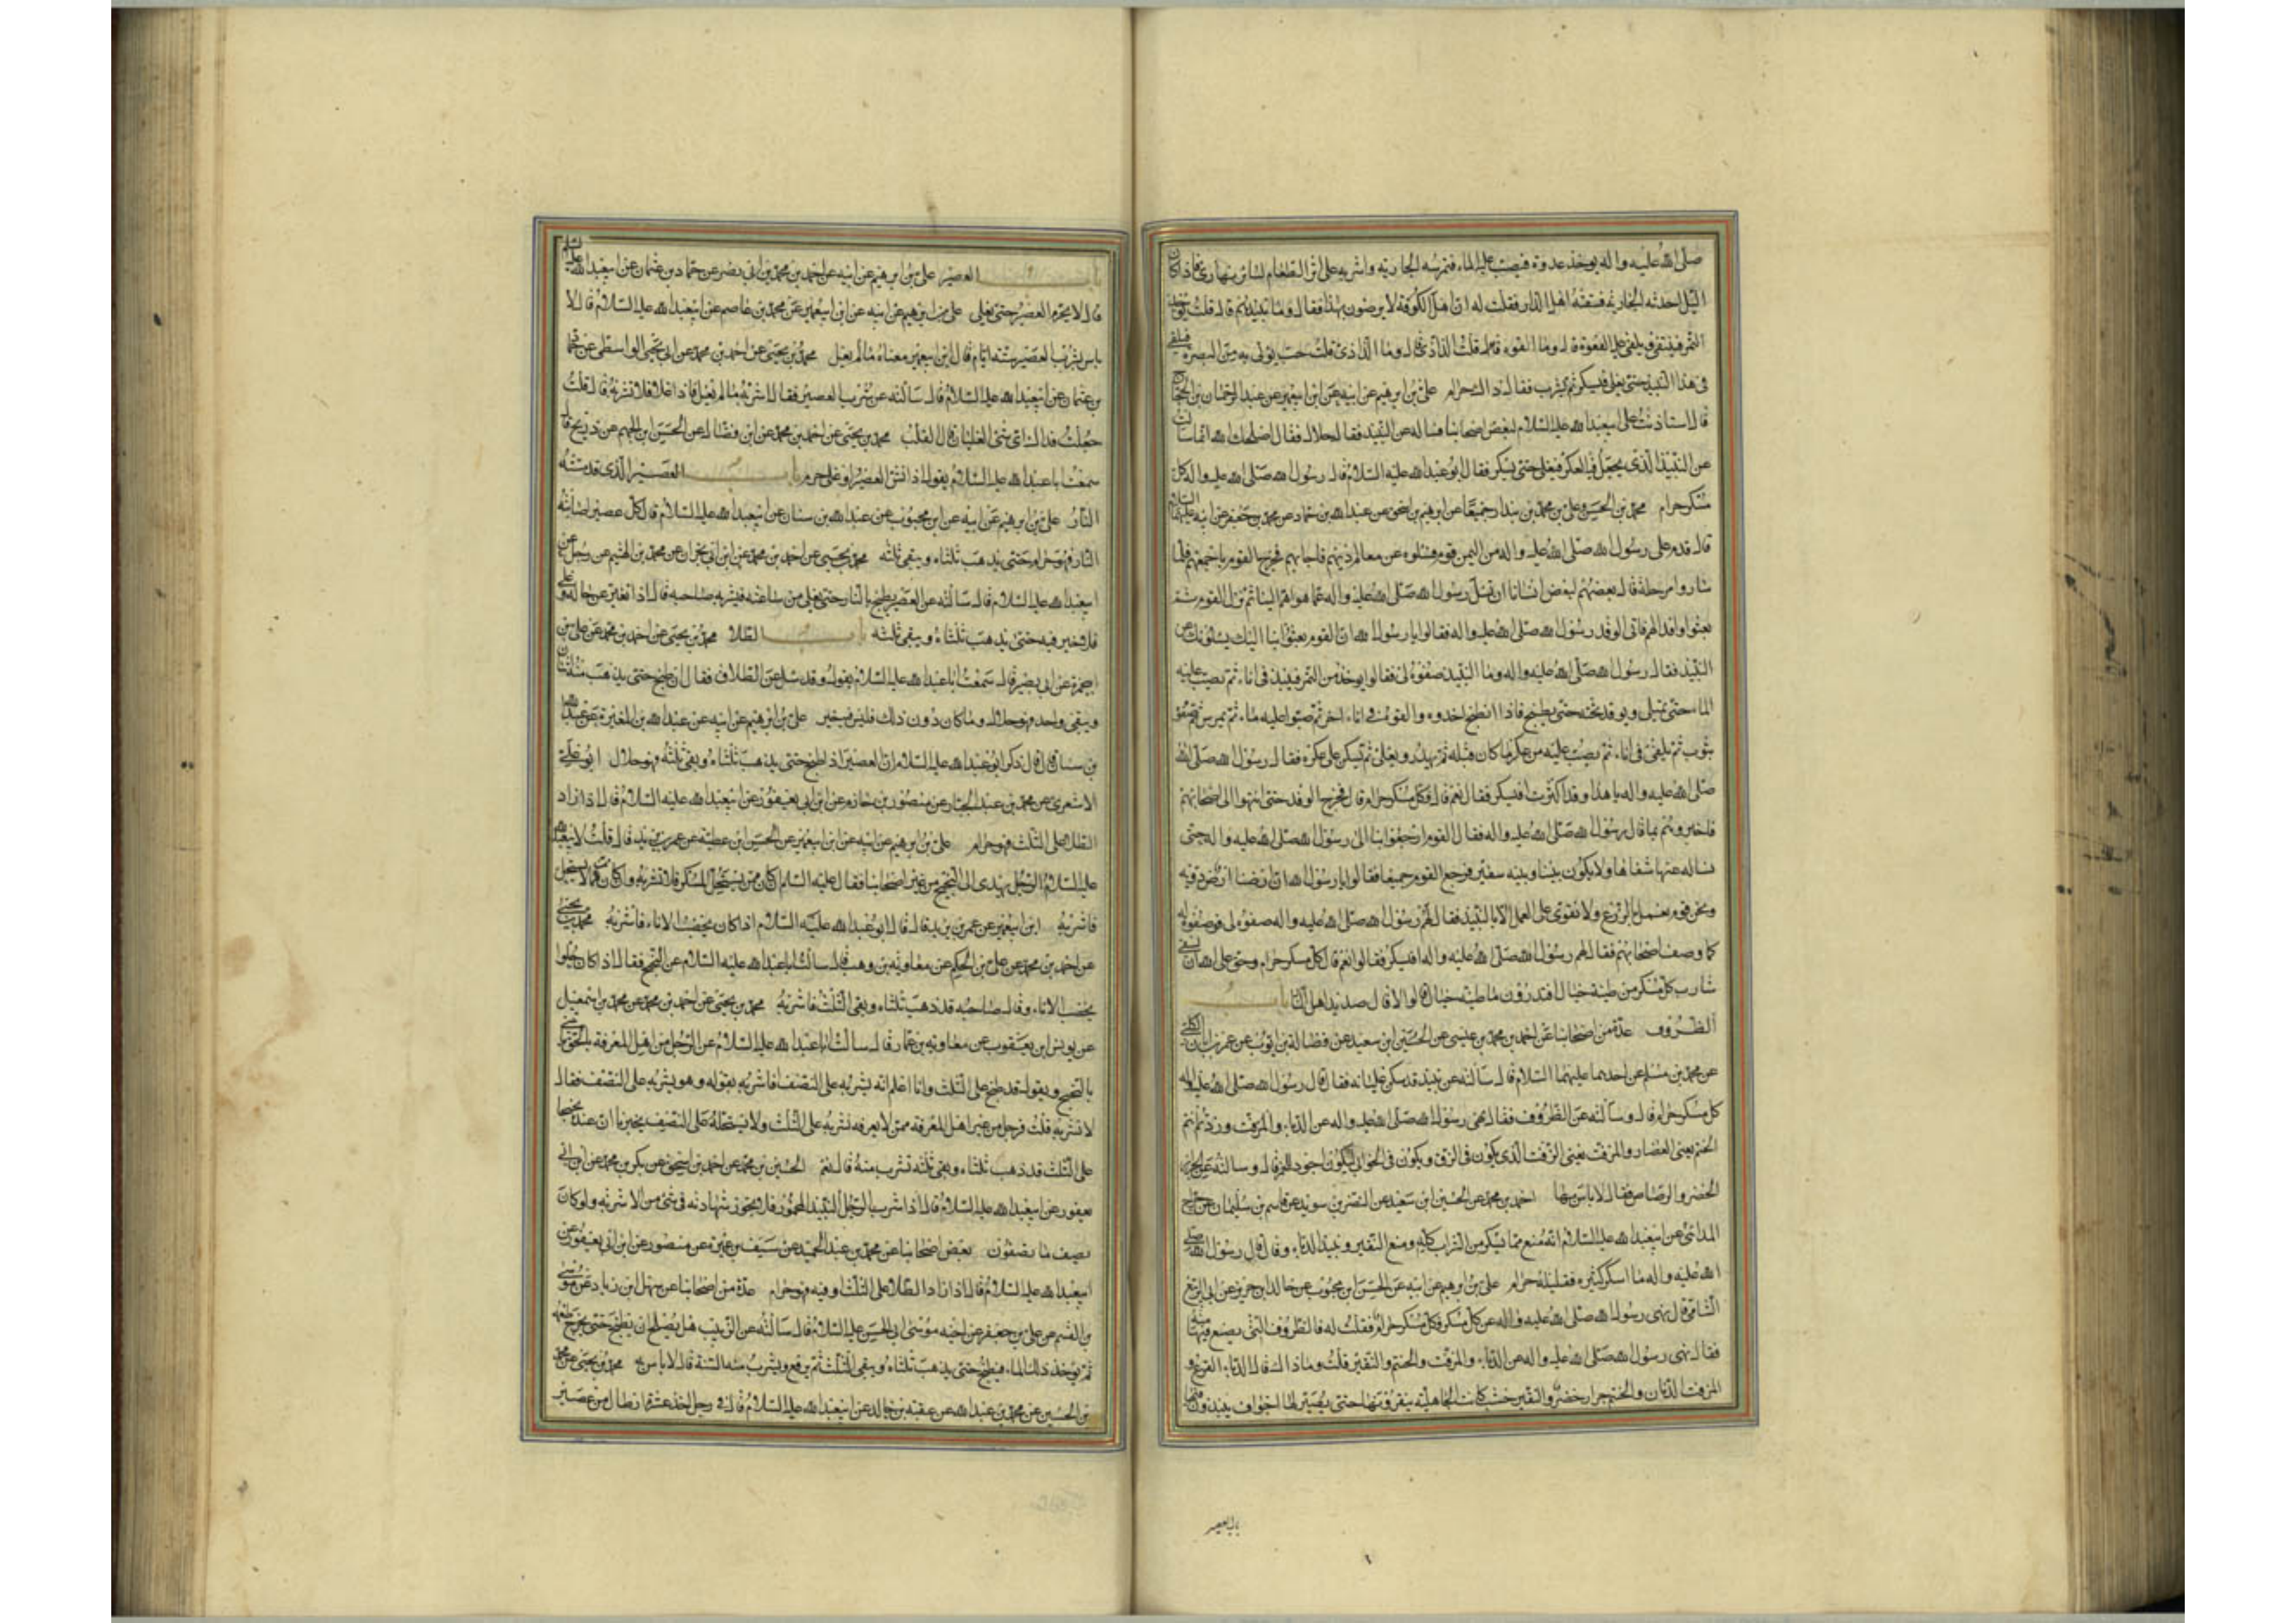 صلى الله عليه واله يوخذ غدوة فيصب عليه الماء فتمرسه الجارية واشربه على اثر الطعام لسائر نهارى فاذا كان
الليل اخذته الجارية فسقته اهل الدار فقلت له ان اهل الكوفة لا يرضون بهذا فقال وما نبيذهم قال قلت يوخذ
التمر فينقى ويلقى عليه القعوة قال وما القعوة قلت الداذى قال وما الداذى قلت حب يؤتى به من البصرة فيلقى
فى هذا النبيذ حتى يغلى فيسكر ثم يشرب فقال ذاك حرام على بن ابرهيم عن ابيه عن ابن ابى عمير عن عبد الرحمن بن الحجاج
قال استاذنت على ابى عبد الله عليه السلام لبعض اصحابنا فساله عن النبيذ فقال حلال فقال اصلحك الله انما سالت
عن النبيذ الذى يجعل فيه العكر فيغلى حتى يسكر فقال ابو عبد الله عليه السلام قال رسول الله صلى الله عليه واله كل
مسكر حرام محمد بن الحسن وعلى بن محمد بن بندار جميعا عن ابرهيم بن اسحق عن عبد الله بن حماد عن محمد بن جعفر عن ابيه عليهما السلام
قال قدم على رسول الله صلى الله عليه واله من اليمن قوم فسئلوه عن معالم دينهم فاجابهم فخرج القوم باجمعهم فلما
ساروا مرحلة قال بعضهم لبعض انسانا ان نسئل رسول الله صلى الله عليه واله عما هو اهم الينا ثم نزل القوم ثم
بعثوا وافدا لهم فاتى الوفد رسول الله صلى الله عليه واله فقالوا يا رسول الله ان القوم بعثوا بنا اليك يسئلونك عن
النبيذ فقال رسول الله صلى الله عليه واله وما النبيذ صفوه لى فقالوا يوخذ من التمر فينبذ فى اناء ثم يصب عليه
الماء حتى يمتلى ويوقد تحته حتى ينطبخ فاذا انطبخ اخذوه والقوه فى اناء اخر ثم صبوا عليه ماء ثم يمرس ثم صفوه
بثوب ثم يلقى فى اناء ثم يصب عليه من عكر ما كان قبله ثم يهدر ويغلى ثم يسكن على عكره فقال رسول الله صلى الله
صلى الله عليه واله يا هذا وقد اكثرت افيسكر فقال نعم قال وكل مسكر حرام قال فخرج الوفد حتى انتهوا الى اصحابهم
فاخبروهم بما قال رسول الله صلى الله عليه واله فقال القوم ارجعوا بنا الى رسول الله صلى الله عليه واله حتى
نساله عنها شفاها ولا يكون بيننا وبينه سفير فرجع القوم جميعا فقالوا يا رسول الله ان ارضنا ارض دوية
ونحن قوم نعمل الزرع ولا نقوى على العمل الا بالنبيذ فقال لهم رسول الله صلى الله عليه واله صفوه لى فوصفوه له
كما وصف اصحابهم فقال لهم رسول الله صلى الله عليه واله افيسكر فقالوا نعم قال كل مسكر حرام وحق على الله ان يسقى
شارب كل مسكر من طينة خبال افتدرون ما طينة خبال قالوا لا قال صديد اهل النار باب
الظروف عدة من اصحابنا عن احمد بن محمد بن عيسى عن الحسين ابن سعيد عن فضالة بن ايوب عن عمر بن ابان الكلبى
عن محمد بن مسلم عن احدهما عليهما السلام قال سالته عن نبيذ قد سكن غليانه فقال قال رسول الله صلى الله عليه واله
كل مسكر حرام قال وسالته عن الظروف فقال نهى رسول الله صلى الله عليه واله عن الدباء والمزفت وزدتم انتم
الحنتم يعنى الغضار والمزفت يعنى الزفت الذى يكون فى الزق ويكون فى الخوابى ليكون اجود للخمر قال وسالته عن الجرار
الخضر والرصاص فقال لا باس بها احمد بن محمد عن الحسين ابن سعيد عن النضر بن سويد عن قاسم بن سليمان عن جراح
المدائنى عن ابى عبد الله عليه السلام انه منع مما يسكر من الشراب كله ومنع النقير ونبيذ الدباء وقال قال رسول الله صلى
الله عليه واله ما اسكر كثيره فقليله حرام على بن ابرهيم عن ابيه عن الحسن ابن محبوب عن خالد ابن جرير عن ابى الربيع
الشامى قال نهى رسول الله صلى الله عليه واله عن كل مسكر فكل مسكر حرام فقلت له فالظروف التى يصنع فيها منه
فقال نهى رسول الله صلى الله عليه واله عن الدباء والمزفت والحنتم والنقير قلت وما ذاك قال الدباء القرع و
المزفت الدنان والحنتم جرار خضر والنقير خشب كانت الجاهلية ينقرونها حتى يصير لها اجواف ينبذون فيها
باب العصير
باب العصير على بن ابرهيم عن ابيه عن احمد بن محمد بن ابى نصر عن حماد بن عثمان عن ابى عبد الله عليه السلام
قال لا يحرم العصير حتى يغلى على بن ابرهيم عن ابيه عن ابن ابى عمير عن محمد بن عاصم عن ابى عبد الله عليه السلام قال لا
باس بشرب العصير ستة ايام قال ابن ابى عمير معناه ما لم يغل محمد بن يحيى عن احمد بن محمد عن ابى يحيى الواسطى عن حماد
بن عثمان عن ابى عبد الله عليه السلام قال سالته عن شرب العصير فقال اشربه ما لم يغل فاذا غلا فلا تشربه قال قلت
جعلت فداك اى شى الغليان قال القلب محمد بن يحيى عن احمد بن محمد عن ابن فضال عن الحسن ابن الجهم عن ذريح قال
سمعت ابا عبد الله عليه السلام يقول اذا نش العصير او غلى حرم باب العصير الذى قد مسته
النار على بن ابرهيم عن ابيه عن ابن محبوب عن عبد الله بن سنان عن ابى عبد الله عليه السلام قال كل عصير اصابته
النار فهو حرام حتى يذهب ثلثاه ويبقى ثلثه محمد بن يحيى عن احمد بن محمد عن ابن ابى نجران عن محمد بن الهيثم عن رجل عن
ابى عبد الله عليه السلام قال سالته عن العصير يطبخ بالنار حتى يغلى من ساعته فيشربه صاحبه قال اذا تغير عن حاله وغلى
فلا خير فيه حتى يذهب ثلثاه ويبقى ثلثه باب الطلا محمد بن يحيى عن احمد بن محمد عن على بن
ابى حمزة عن ابى بصير قال سمعت ابا عبد الله عليه السلام يقول وقد سئل عن الطلا فقال ان طبخ حتى يذهب منه اثنان
ويبقى واحد فهو حلال وما كان دون ذلك فليس فيه خير على بن ابرهيم عن ابيه عن عبد الله بن المغيرة عن عبد الله
بن سنان قال قال ذكر ابو عبد الله عليه السلام ان العصير اذا طبخ حتى يذهب ثلثاه وبقى ثلثه فهو حلال ابو على
الاشعرى عن محمد بن عبد الجبار عن منصور بن حازم عن ابن ابى يعفور عن ابى عبد الله عليه السلام قال اذا زاد
الطلا على الثلث فهو حرام على بن ابرهيم عن ابيه عن ابن ابى عمير عن الحسن ابن عطية عن عمر بن يزيد قال قلت لابى عبد الله
عليه السلام الرجل يهدى الى البختج من غير اصحابنا فقال عليه السلام ان كان ممن يستحل المسكر فلا تشربه وان كان ممن لا يستحل
فاشربه ابن ابى عمير عن عمر بن يزيد قال قال ابو عبد الله عليه السلام اذا كان يخضب الاناء فاشربه محمد بن يحيى
عن احمد بن محمد عن على بن الحكم عن معاوية بن وهب قال سالت ابا عبد الله عليه السلام عن البختج فقال اذا كان حلوا
يخضب الاناء وقال صاحبه قد ذهب ثلثاه وبقى الثلث فاشربه محمد بن يحيى عن احمد بن محمد عن محمد بن اسمعيل
عن يونس ابن يعقوب عن معاوية بن عمار قال سالت ابا عبد الله عليه السلام عن الرجل من اهل المعرفة بالحق ياتينى
بالبختج ويقول قد طبخ على الثلث وانا اعلم انه يشربه على النصف افاشربه بقوله وهو يشربه على النصف فقال
لا تشربه قلت فرجل من غير اهل المعرفة ممن لا يعرفه يشربه على الثلث ولا يستحله على النصف يخبرنا ان عنده بختجا
على الثلث قد ذهب ثلثاه وبقى ثلثه نشرب منه قال نعم الحسين بن محمد عن احمد بن اسحق عن بكر بن محمد عن ابن ابى
يعفور عن ابى عبد الله عليه السلام قال اذا شرب الرجل النبيذ المخمور فلا يجوز شهادته فى شى من الاشربة ولو كان
يصف ما تصفون بعض اصحابنا عن محمد بن عبد الحميد عن سيف بن عميرة عن منصور عن ابن ابى يعفور عن
ابى عبد الله عليه السلام قال اذا زاد الطلا على الثلث اوقية فهو حرام عدة من اصحابنا عن سهل ابن زياد عن موسى
بن القسم عن على بن جعفر عن اخيه موسى ابى الحسن عليه السلام قال سالته عن الزبيب هل يصلح ان يطبخ حتى يخرج طعمه
ثم يوخذ ذلك الماء فيطبخ حتى يذهب ثلثاه ويبقى الثلث ثم يرفع ويشرب منه السنة قال لا باس به محمد بن يحيى عن محمد
بن الحسين عن محمد بن عبد الله عن عقبة بن خالد عن ابى عبد الله عليه السلام قال فى رجل اخذ عشرة ارطال من عصير